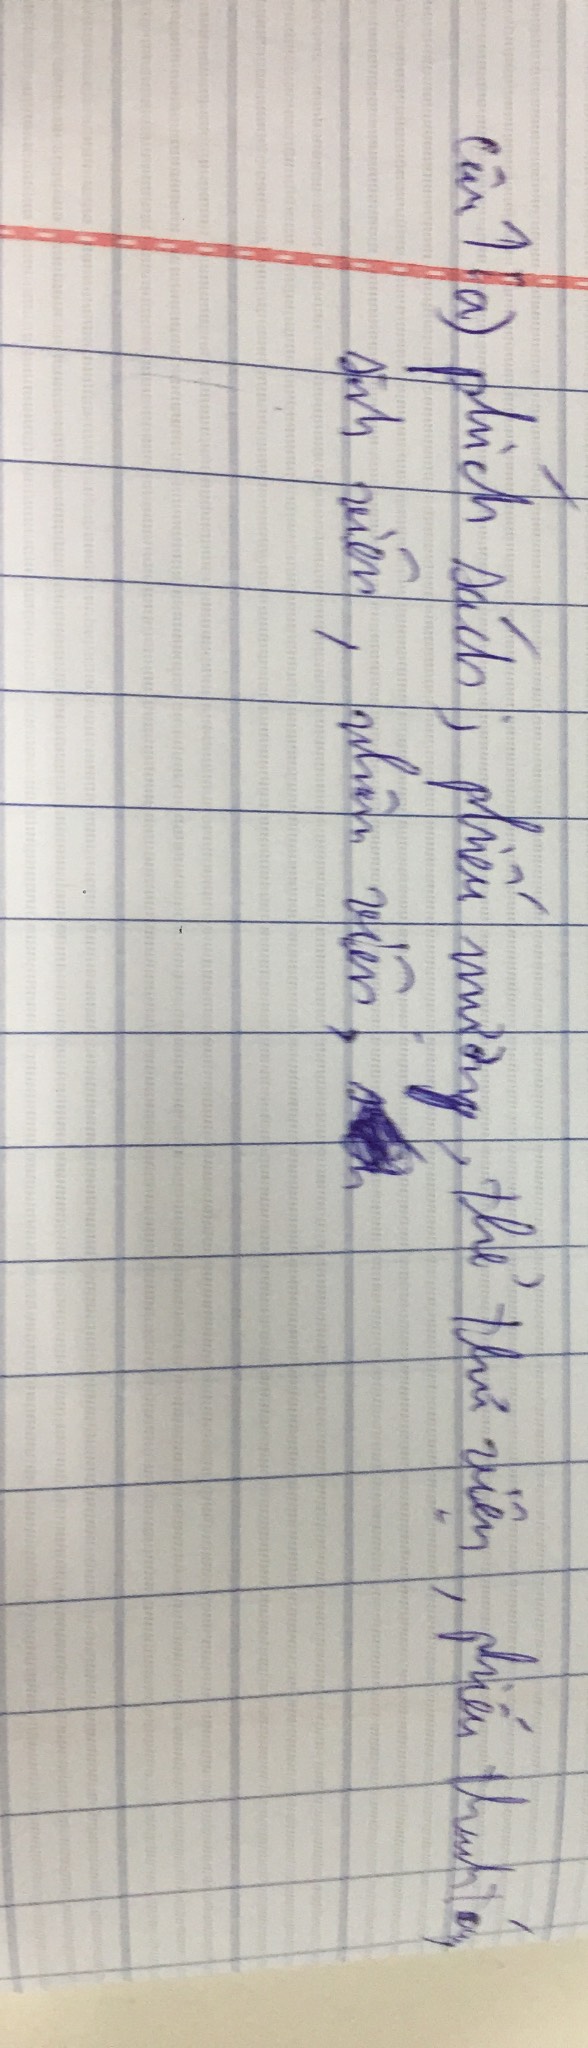 Câu 1: a) phích sách, phiếu mượn, thẻ thư viện, phiếu thanh lý,
sinh viên, nhân viên,